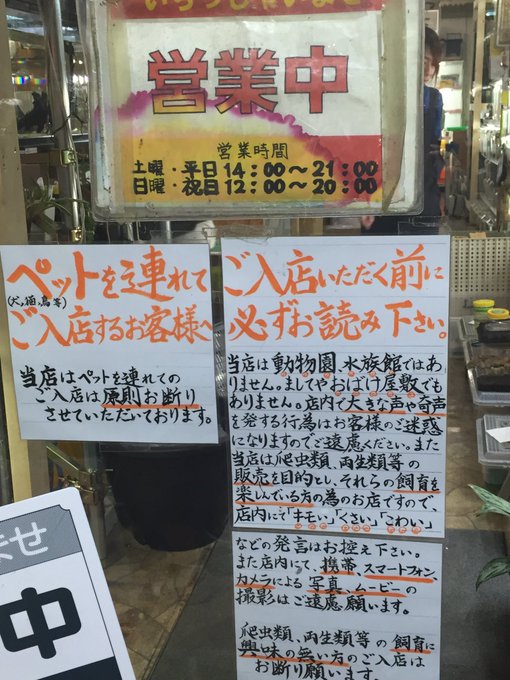 いらっしゃいませ
営業中
営業時間
土曜・平日14:00〜21:00
日曜・祝日12:00〜20:00
ペットを連れて
(犬、猫、鳥等)
ご入店するお客様へ
当店はペットを連れての
ご入店は原則お断り
させていただいております。
ご入店いただく前に
必ずお読み下さい。
当店は動物園、水族館ではあ
りません。ましてやおばけ屋敷でも
ありません。店内で大きな声や奇声
を発する行為はお客様のご迷惑
になりますのでご遠慮ください。また
当店は爬虫類、両生類等の
販売を目的とし、それらの飼育を
楽しんでいる方の為のお店ですので
店内にて「キモい」「くさい」「こわい」
などの発言はお控え下さい。
また店内にて、携帯、スマートフォン、
カメラによる写真、ムービーの
撮影はご遠慮願います。
爬虫類、両生類等の飼育に
興味の無い方のご入店は
お断り願います。
ませ
中